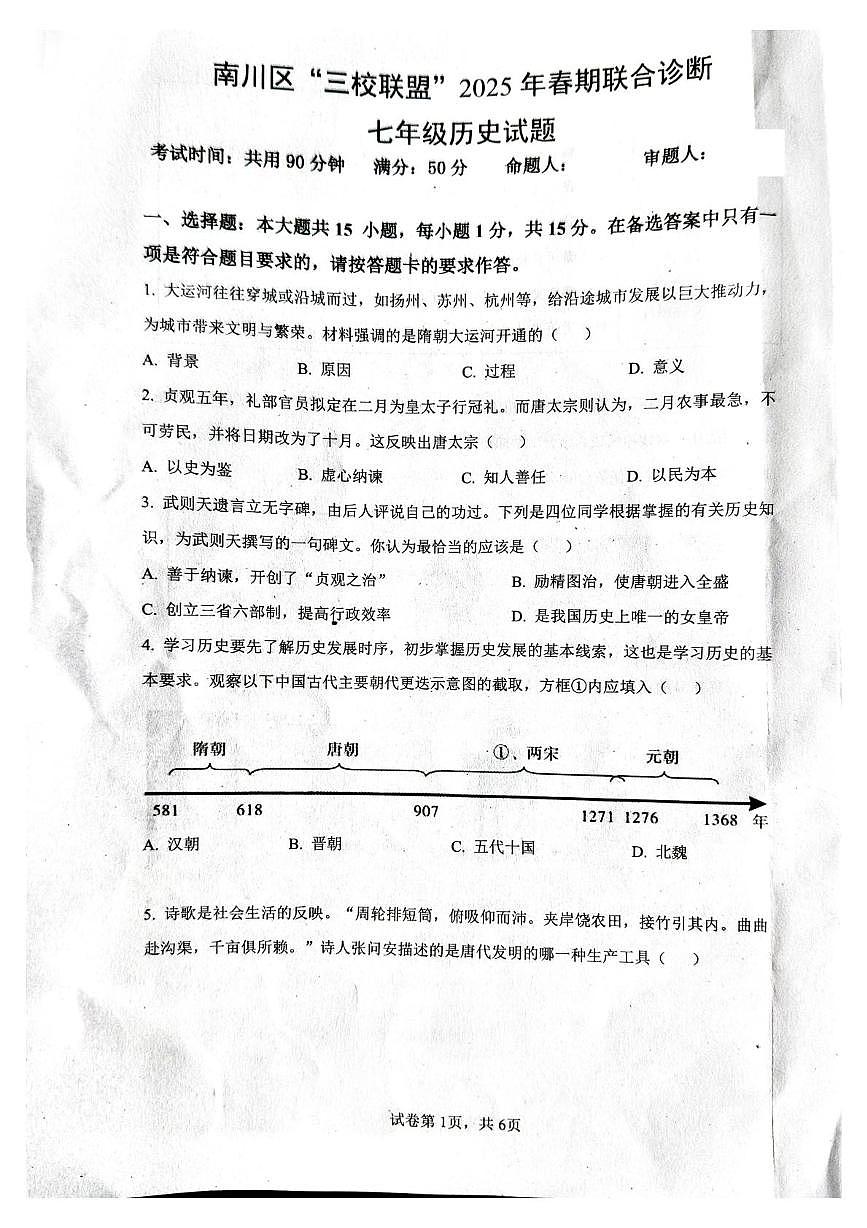 南川区“三校联盟”2025年春期联合诊断
七年级历史试题
考试时间：共用90分钟 满分：50分 命题人： 审题人：
一、选择题：本大题共15 小题，每小题1分，共15分。在备选答案中只有一
项是符合题目要求的，请按答题卡的要求作答。
1. 大运河往往穿城或沿城而过，如扬州、苏州、杭州等，给沿途城市发展以巨大推动力，
为城市带来文明与繁荣。材料强调的是隋朝大运河开通的（ ）
A. 背景 B. 原因 C. 过程 D. 意义
2. 贞观五年，礼部官员拟定在二月为皇太子行冠礼。而唐太宗则认为，二月农事最急，不
可劳民，并将日期改为了十月。这反映出唐太宗（ ）
A. 以史为鉴 B. 虚心纳谏 C. 知人善任 D. 以民为本
3. 武则天遗言立无字碑，由后人评说自己的功过。下列是四位同学根据掌握的有关历史知
识，为武则天撰写的一句碑文。你认为最恰当的应该是（ ）
A. 善于纳谏，开创了“贞观之治” B. 励精图治，使唐朝进入全盛
C. 创立三省六部制，提高行政效率 D. 是我国历史上唯一的女皇帝
4. 学习历史要先了解历史发展时序，初步掌握历史发展的基本线索，这也是学习历史的基
本要求。观察以下中国古代主要朝代更迭示意图的截取，方框①内应填入（ ）
隋朝 唐朝 ①、两宋 元朝
581 618 907 1271 1276 1368 年
A. 汉朝 B. 晋朝 C. 五代十国 D. 北魏
5. 诗歌是社会生活的反映。“周轮排短筒，俯吸仰而沛。夹岸饶农田，接竹引其内。曲曲
赴沟渠，千亩俱所赖。”诗人张问安描述的是唐代发明的哪一种生产工具（ ）
试卷第1页，共6页